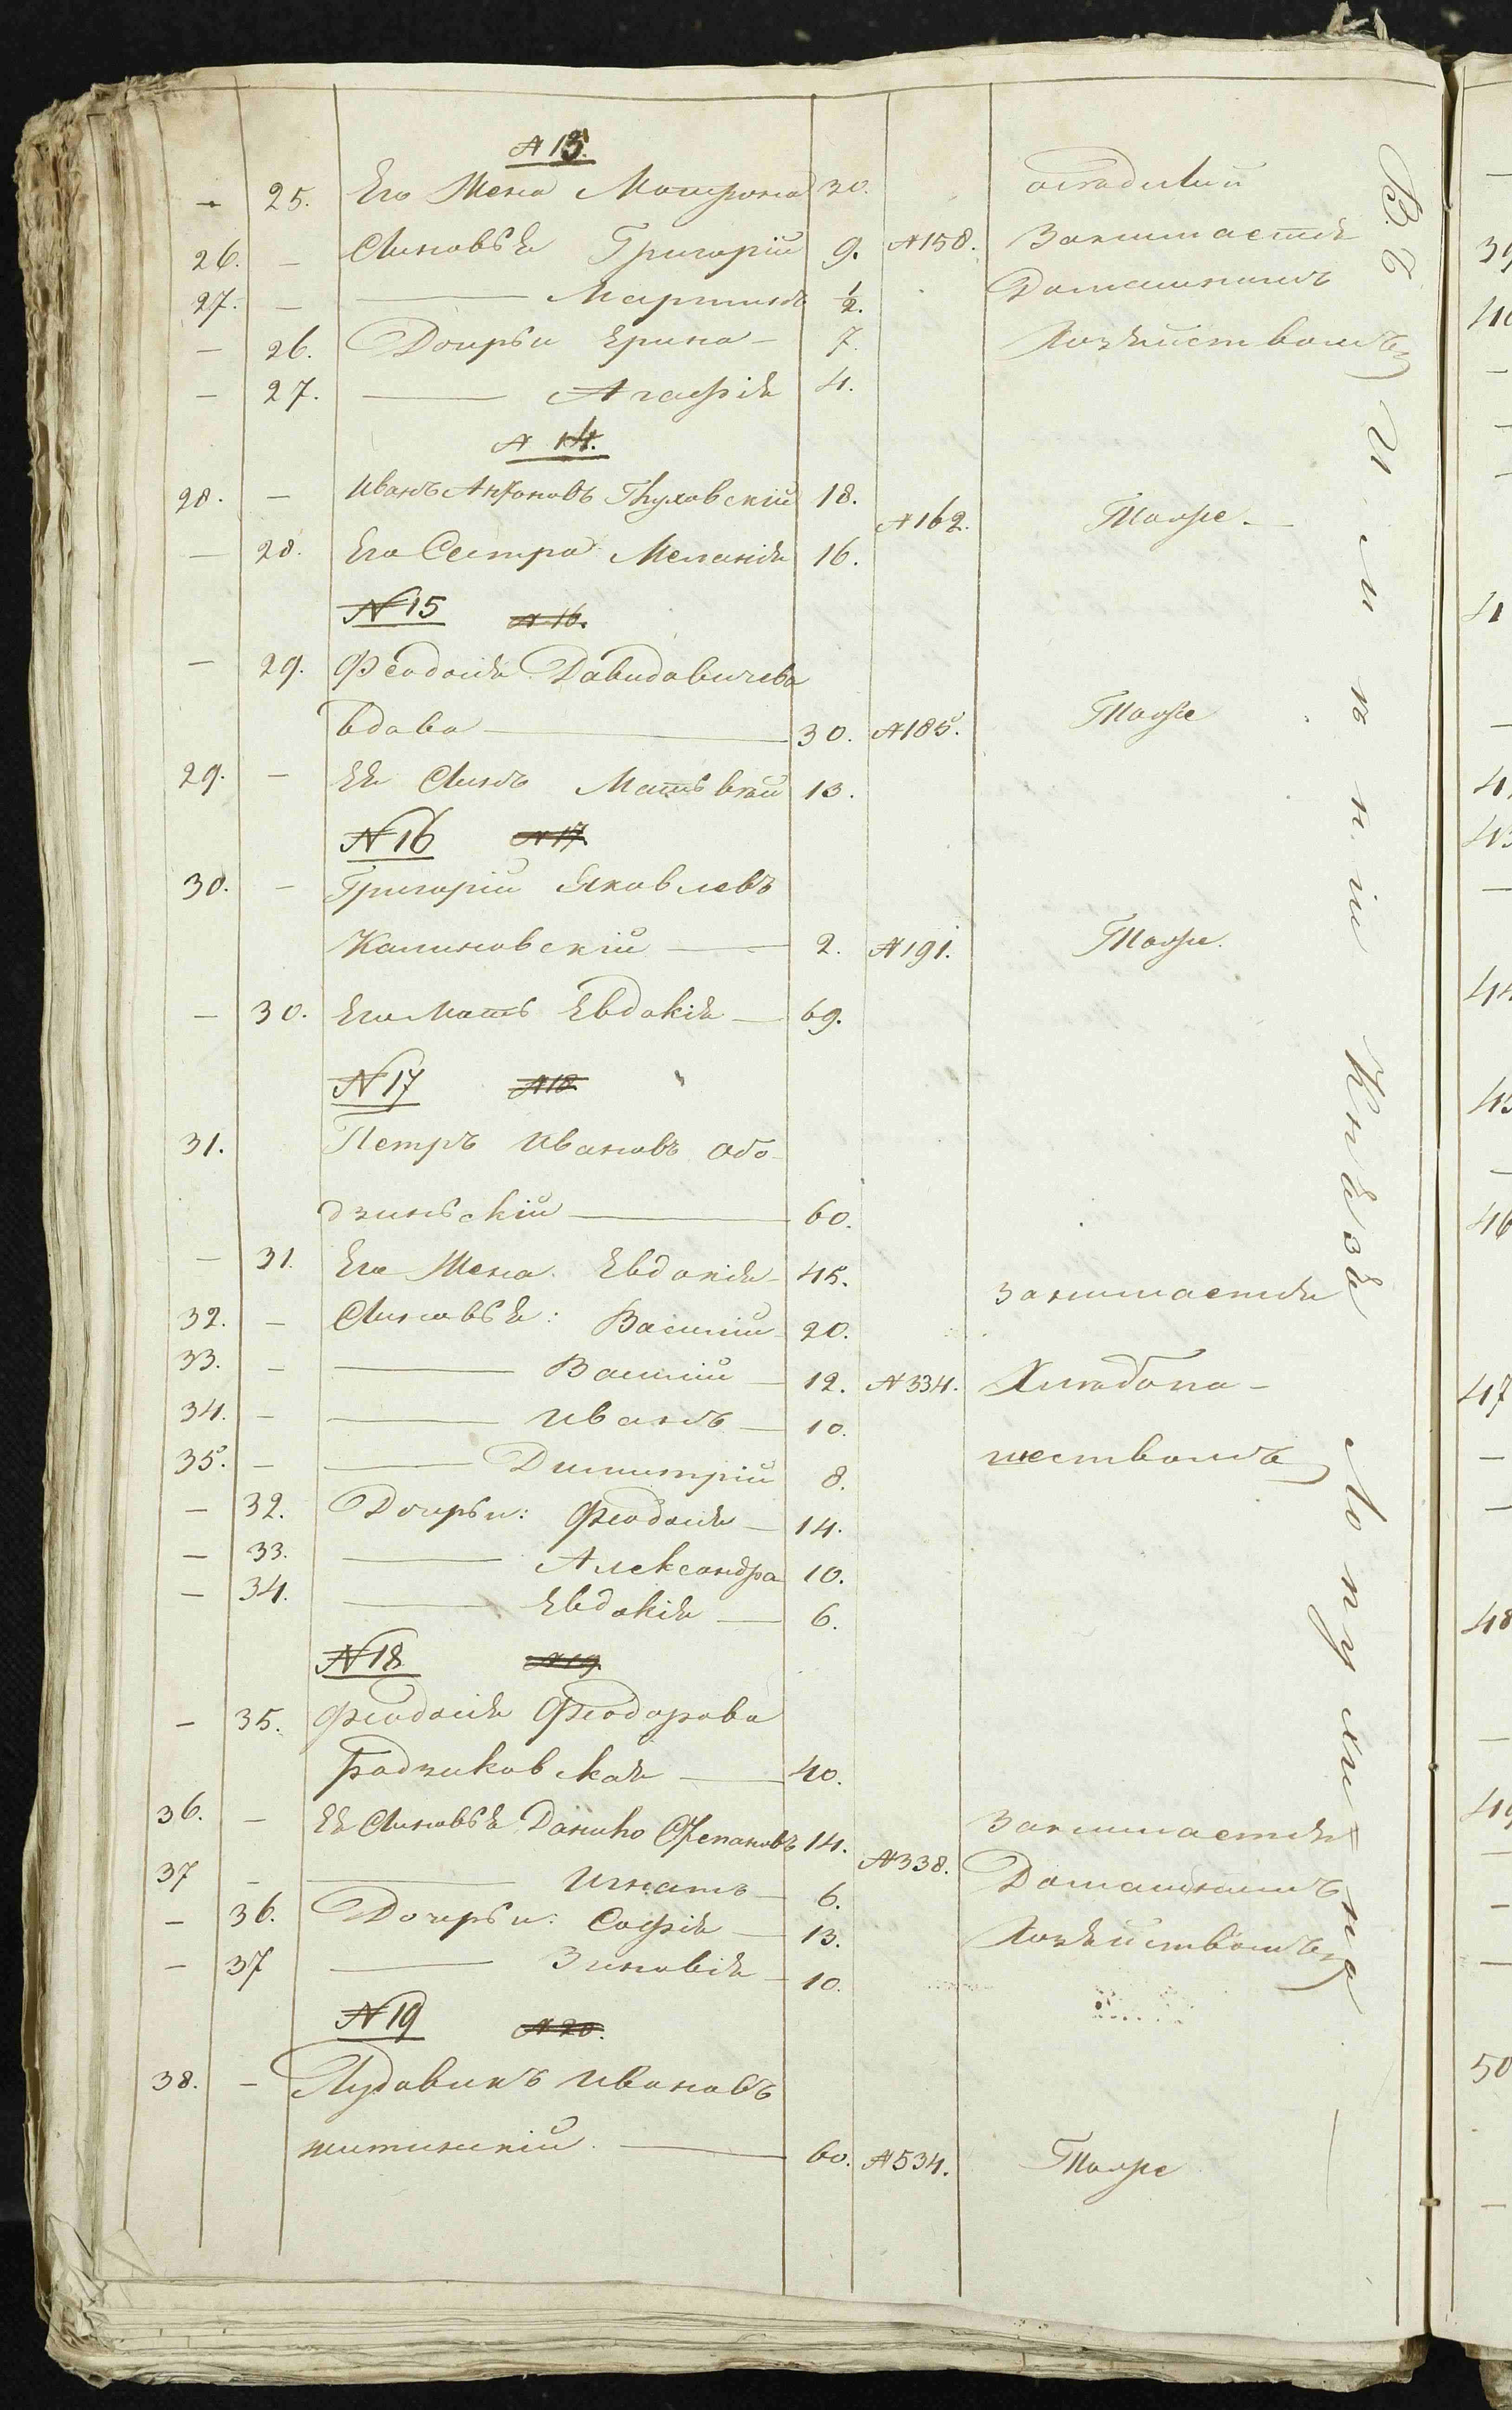 № 13.
— 25. Его Жена Матрона 30. оседлый
26. — Сыновья Григорій 9. №158. Занимается
27. — — Мартинъ ½. Домашнимъ
— 26. Дочрьи Ерина — 7. Хозяйствомъ
— 27. — Агафія 4.
№ 14.
28. — Иванъ Антоновъ Глуховскій 18.
№162. Тоже —
— 28. Его Сестра Меланія 16.
№15 № 16.
— 29. Феодосія Давидовичева
вдова — 30. №185. Тоже
29. — Ея Сынъ Матьвѣй 13.
№16 № 17
30. — Григорій Яковлевъ
Калиновскій — 2. №191. Тоже.
— 30. Его Мать Евдокія — 69.
№17 №18
31. Петръ Ивановъ Обо-
дзиньскій — 60.
— 31. Его Жена Евдокія — 45. занимается
32. — Сыновья: Василій 20.
33. — — Василій — 12. №334. Хлебопа-
34. — — Иванъ — 10.
35. — — Димитрій 8. шествомъ
— 32. Дочрьи: Феодосія — 14.
— 33. — Александра 10.
— 34. — Евдокія — 6.
№18 №19
— 35. Феодосія Феодорова
Бодзиковская — 40.
36. — Ея Сыновья Данило Степановъ 14. Занимается
37 — — Игнатъ — 6. №338. Домашнимъ
— 36. Дочрьи: Софія — 13. Хозяйствомъ
— 37 — Зиновія — 10.
№19 № 20.
38. — Лудовикъ Ивановъ
житинскій. — 60. №534. Тоже
Въ Имѣніи Князя Лопухина
39
40
41
4
43
44
45
46
47
48
49
50